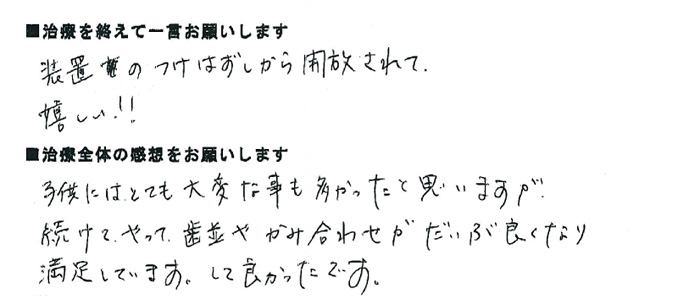 ■治療を終えて一言お願いします
装置のつけはずしから開放されて、
嬉しい!!
■治療全体の感想をお願いします
子供にはとても大変な事も多かったと思いますが、
続けて、やって、歯並や かみ合わせが だいぶ良くなり
満足しています。して良かったです。